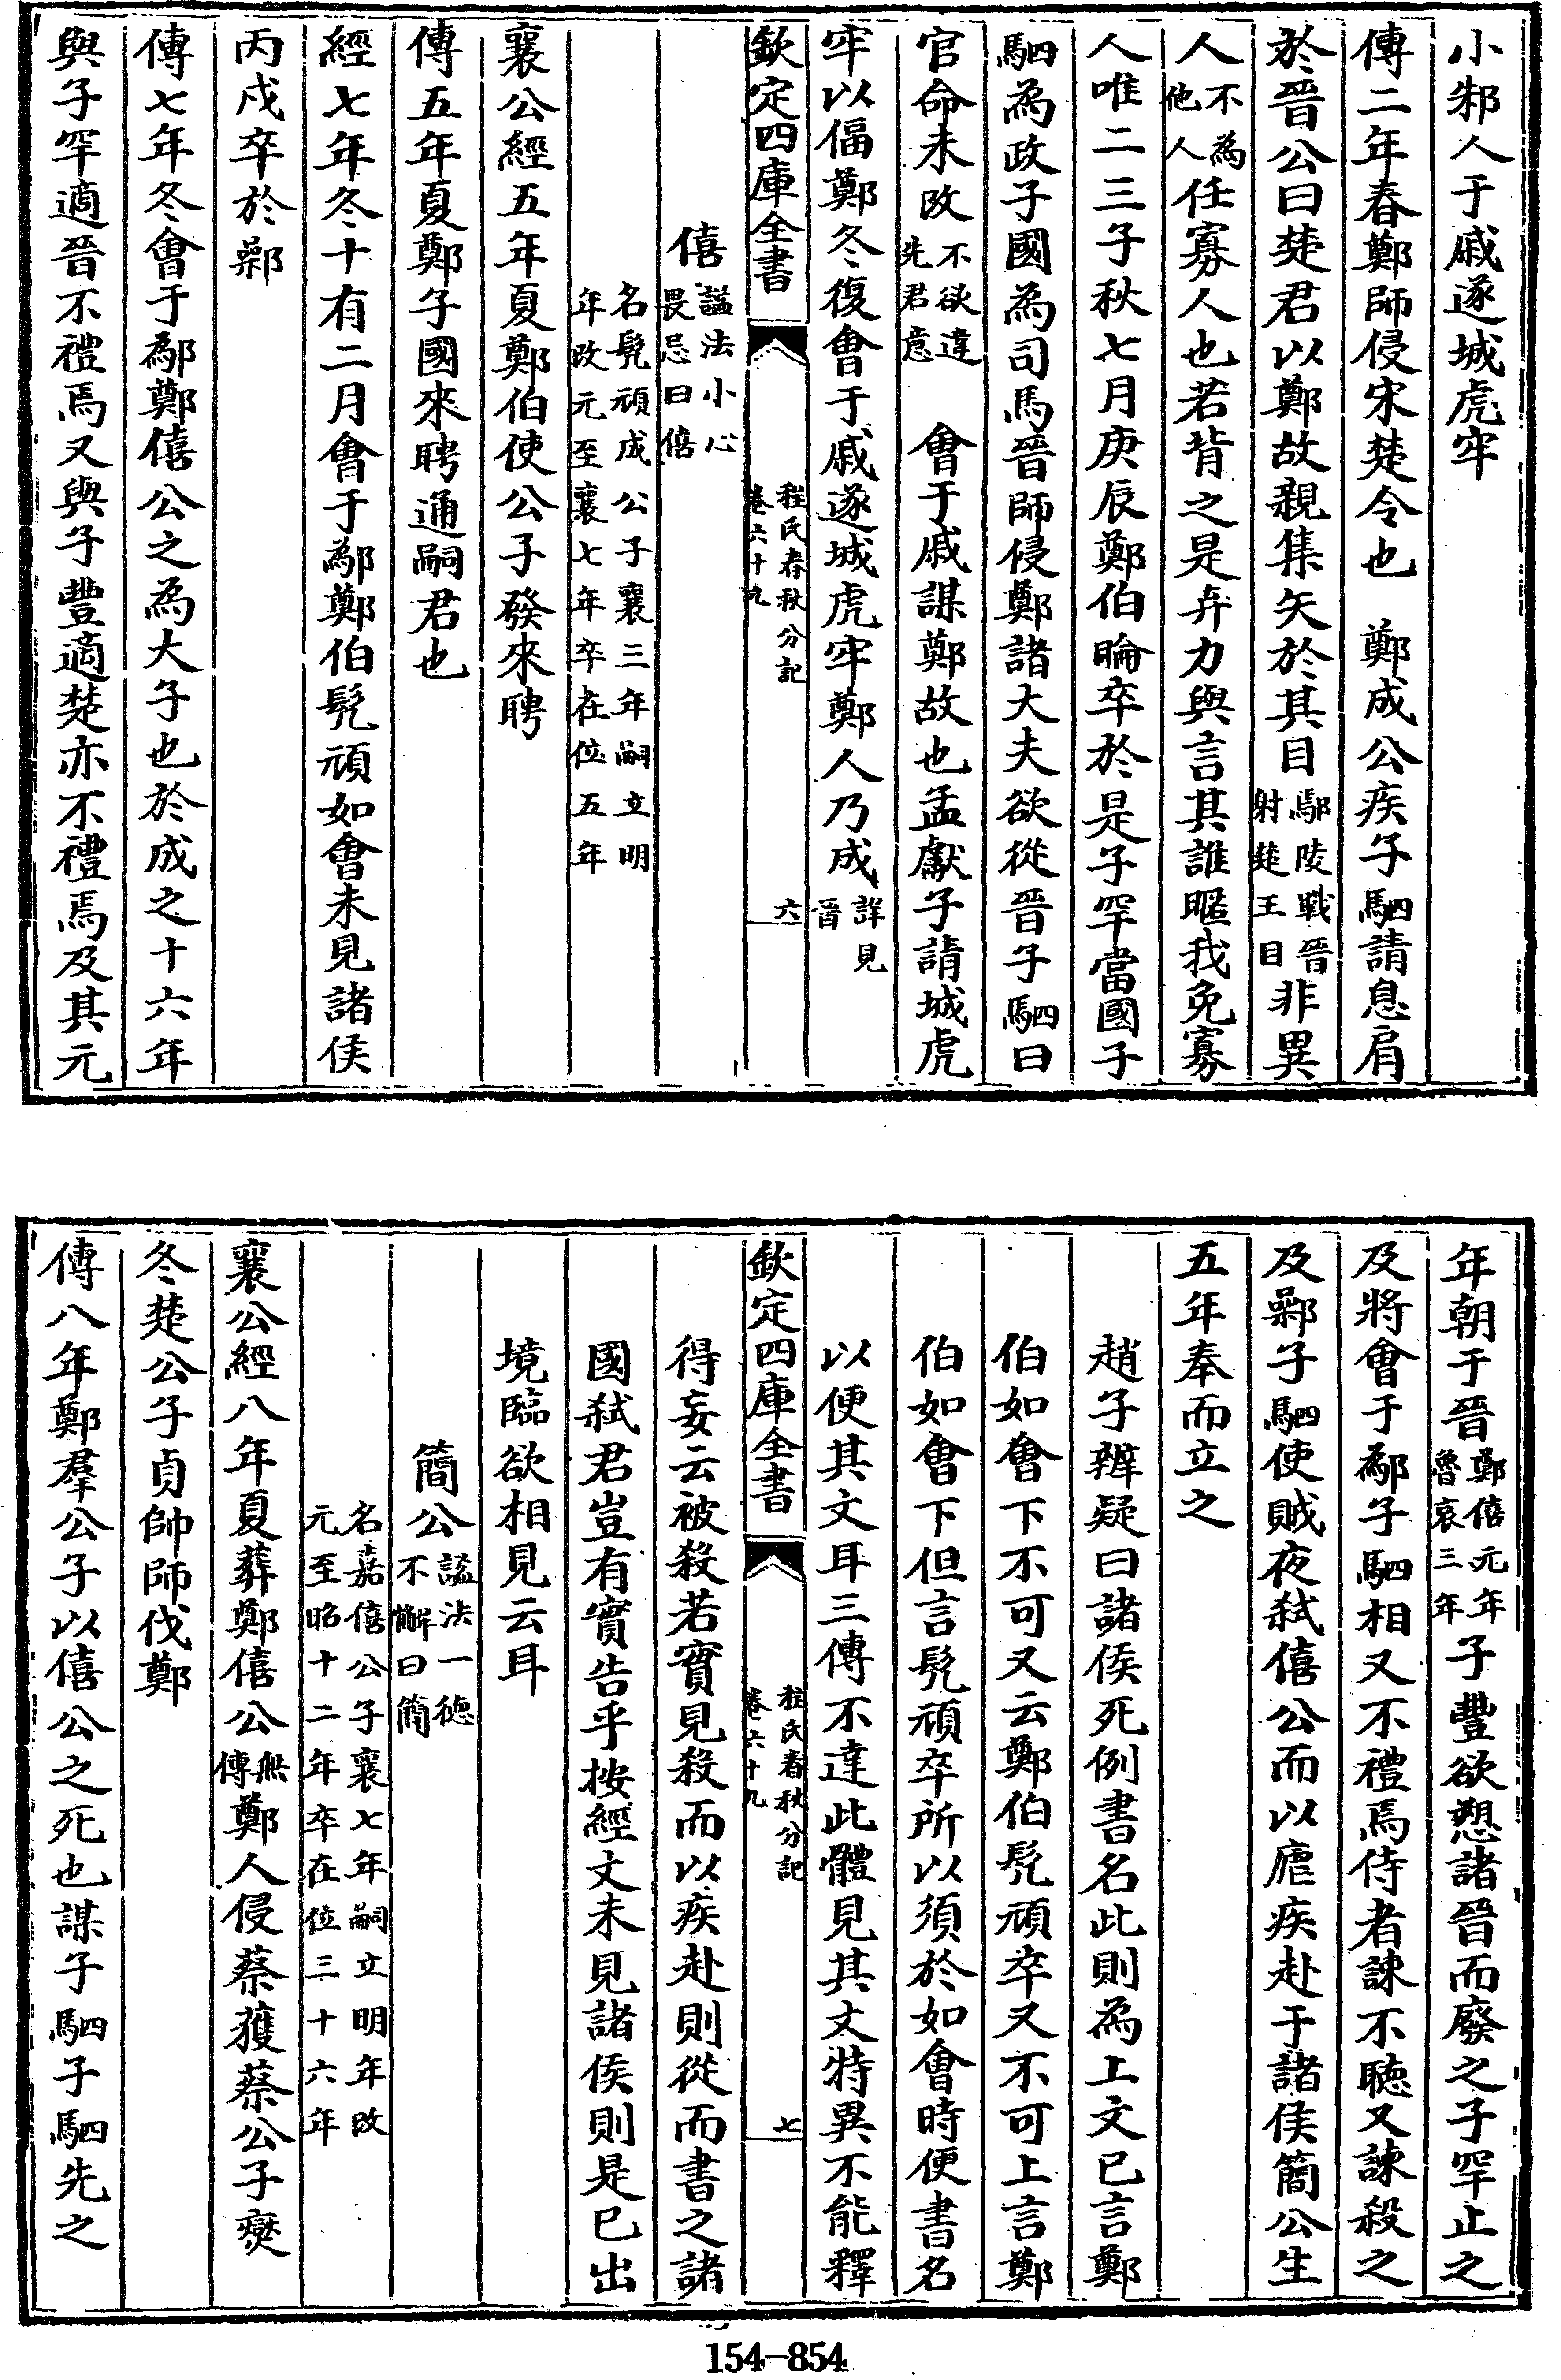 小邾人于戚遂城虎牢
傳二年春鄭師侵宋楚令也　鄭成公疾子駟請息肩
於晉公曰楚君以鄭故親集矢於其目鄢陵戰晉射楚王目非異
人不為他人任寡人也若背之是弃力與言其誰暱我免寡
人唯二三子秋七月庚辰鄭伯睔卒於是子罕當國子
駟為政子國為司馬晉師侵鄭諸大夫欲從晉子駟曰
官命未改不欲違先君意　會于戚謀鄭故也孟獻子請城虎
牢以偪鄭冬復會于戚遂城虎牢鄭人乃成詳見晉
欽定四庫全書
程氏春秋分記
卷六十九
六
僖諡法小心畏忌曰僖
名髠頑成公子襄三年嗣立明年改元至襄七年卒在位五年
襄公經五年夏鄭伯使公子發來聘
傳五年夏鄭子國來聘通嗣君也
經七年冬十有二月會于鄬鄭伯髠頑如會未見諸侯
丙戍卒於鄵
傳七年冬會于鄬鄭僖公之為大子也於成之十六年
與子罕適晉不禮焉又與子豐適楚亦不禮焉及其元
年朝于晉鄭僖元年魯哀三年子豐欲愬諸晉而廢之子罕止之
及將會于鄬子駟相又不禮焉侍者諫不聽又諫殺之
及鄵子駟使賊夜弒僖公而以瘧疾赴于諸侯簡公生
五年奉而立之
趙子辨疑曰諸侯死例書名此則為上文已言鄭
伯如會下不可又云鄭伯髠頑卒又不可上言鄭
伯如會下但言髠頑卒所以須於如會時便書名
以便其文耳三傳不達此體見其文特異不能釋
欽定四庫全書
程氏春秋分記
卷六十九
七
得妄云被殺若實見殺而以疾赴則從而書之諸
國弒君豈有實告乎按經文未見諸侯則是已出
境臨欲相見云耳
簡公諡法一德不懈曰簡
名嘉僖公子襄七年嗣立明年改元至昭十二年卒在位三十六年
襄公經八年夏葬鄭僖公無傳鄭人侵蔡獲蔡公子燮
冬楚公子貞帥師伐鄭
傳八年鄭羣公子以僖公之死也謀子駟子駟先之
154-854